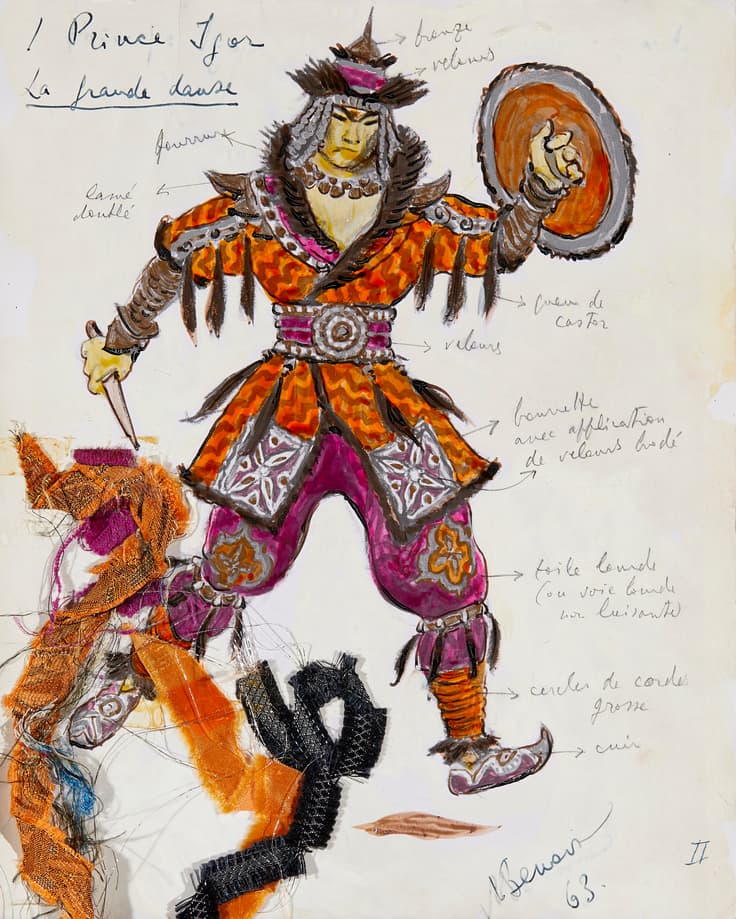 1 Prince Igor
La grande danse
bronze
velours
fourrure
lamé
doublé
queue de
castor
velours
bourrette
avec application
de velours brodé
toile lourde
(ou soie lourde
non luisante)
cercles de cordes
grosse
cuir
NBenois
63.
II